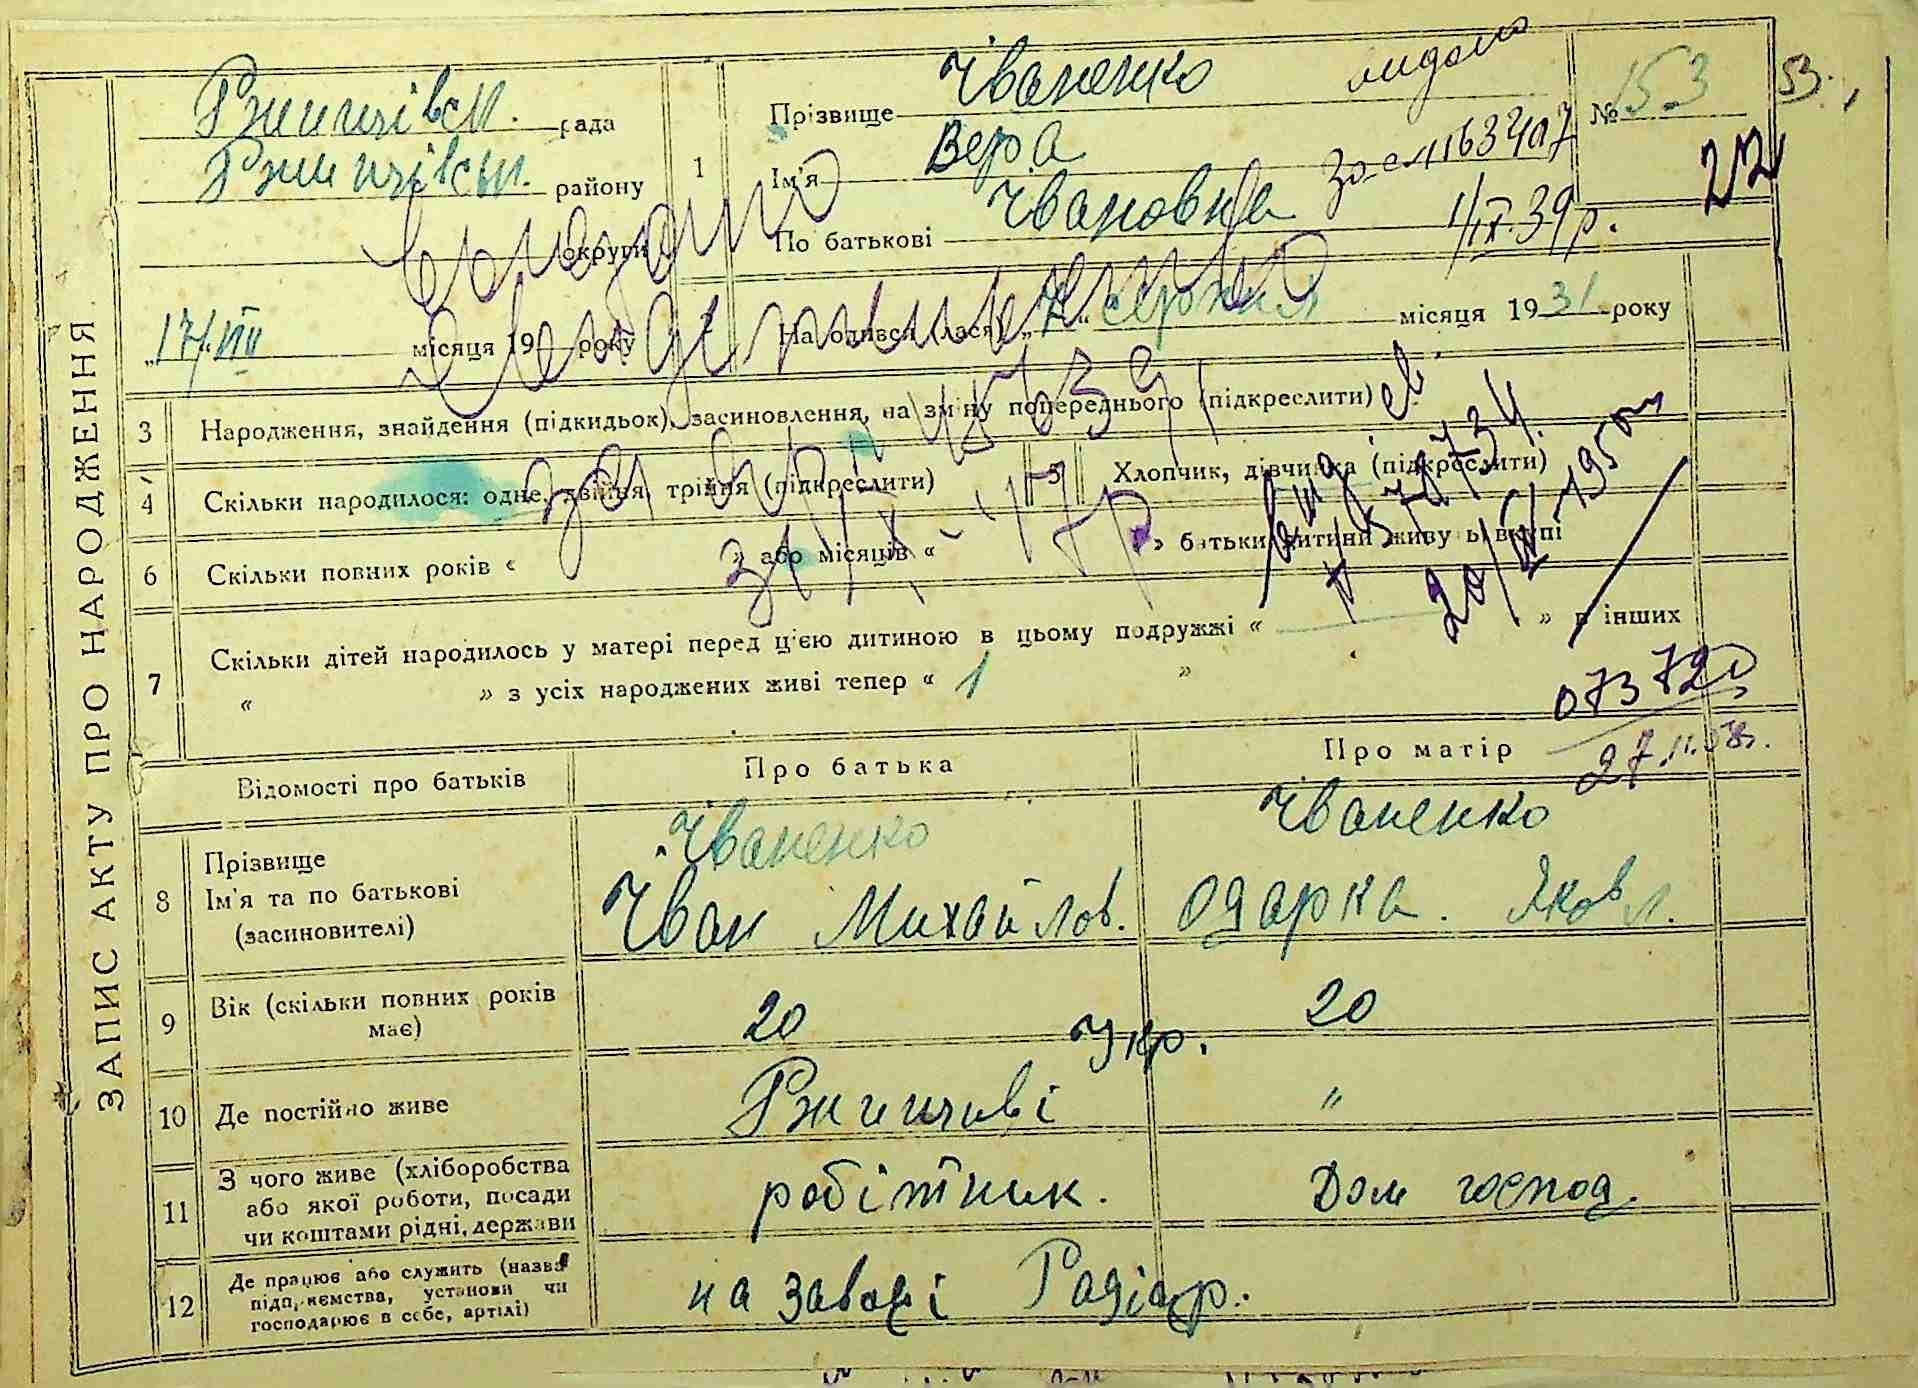 ЗАПИС АКТУ ПРО НАРОДЖЕННЯ.
Ржищівськ. рада
Ржищівськ. району
округи
"17/VIII місяця 19 року
1
Прізвище Іваненко
Ім'я Вера
По батькові Івановна
видано
1/IX.39р.
№ 153
53.
22
Народився (лася) „7“ серпня місяця 1931 року
3 Народження, знайдення (підкидьок), засиновлення, на зміну попереднього (підкреслити)
4 Скільки народилося: одне, двійня, трійня (підкреслити)
5 Хлопчик, дівчинка (підкреслити)
6 Скільки повних років « » або місяців « » батьки дитини живуть вкупі
7 Скільки дітей народилось у матері перед цією дитиною в цьому подружжі « » в інших
« » з усіх народжених живі тепер « 1 »
свідоцтво
07372
27.11.58р.
Відомості про батьків
Про батька
Про матір
8 Прізвище
Ім'я та по батькові
(засиновителі)
Іваненко
Іван Михайлов.
Іваненко
Одарка. Яковл.
9 Вік (скільки повних років має)
20
Укр.
20
10 Де постійно живе
Ржищеві
"
11 З чого живе (хліборобства
або якої роботи, посади
чи коштами рідні, держави
робітник.
Дом господ.
12 Де працює або служить (назва
підприємства, установи чи
господарює в себе, артілі)
на заводі Радіатр.